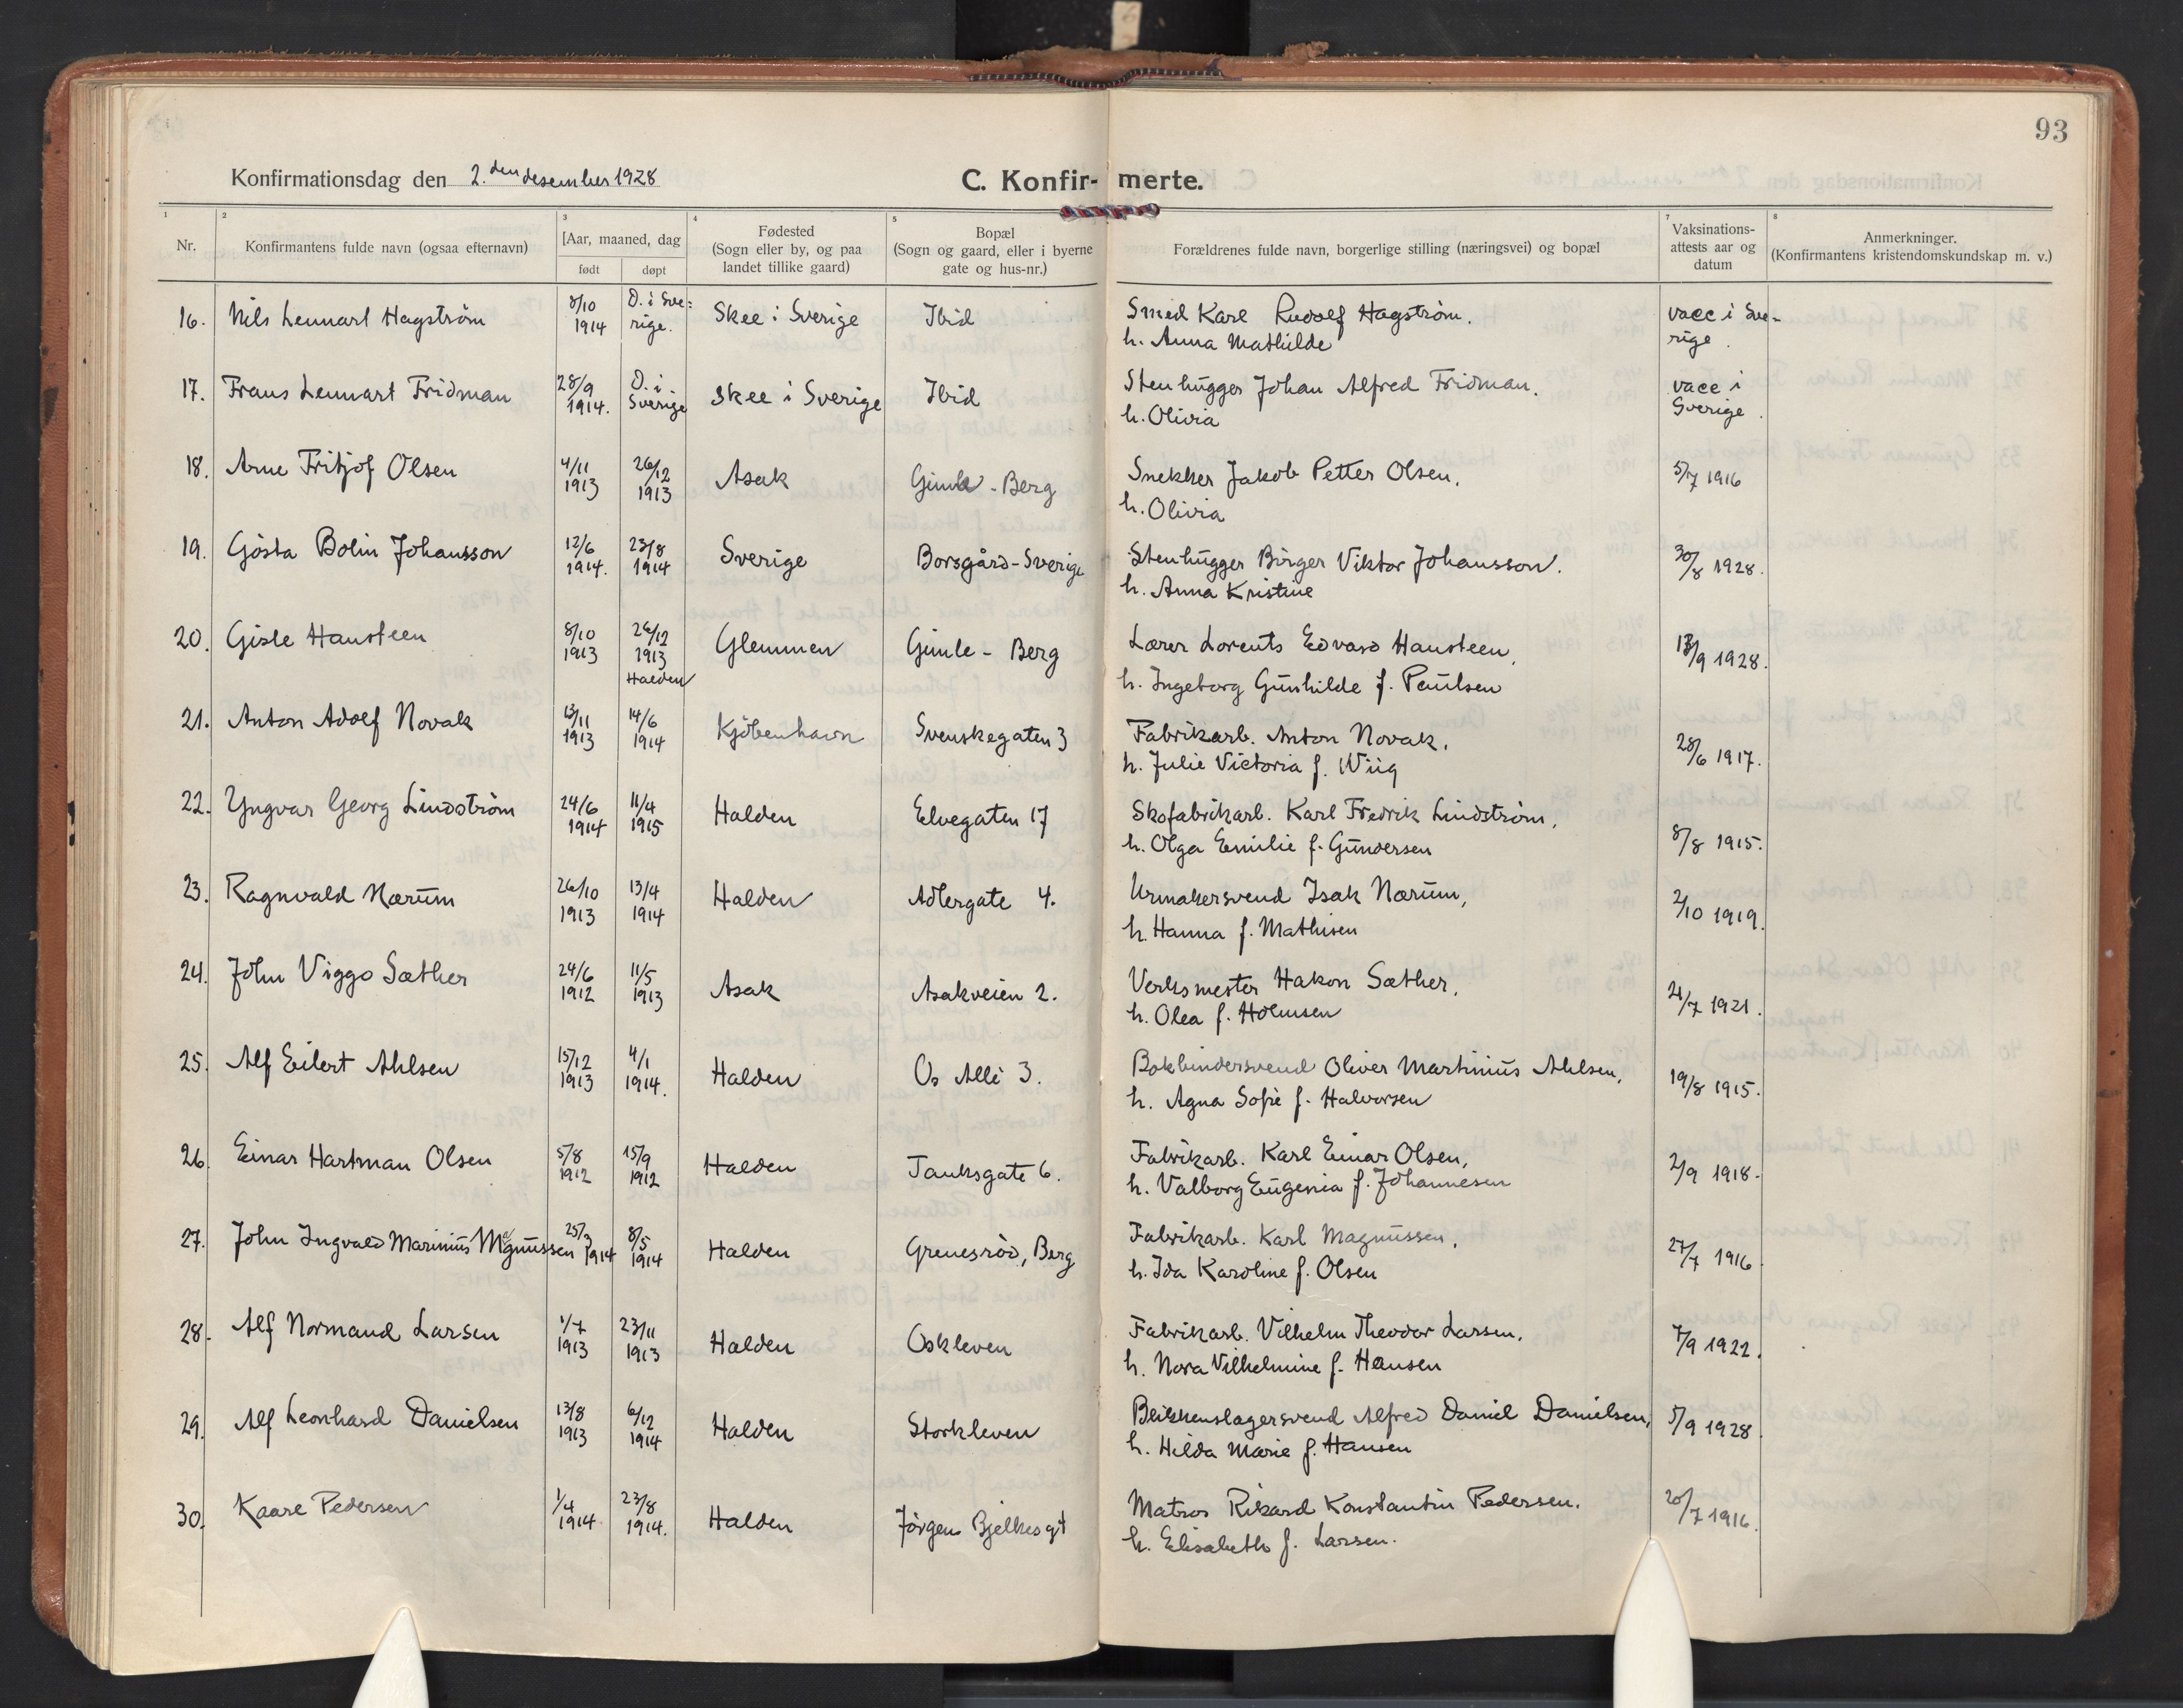 93
Konfirmationsdag den 2. den desember 1928
C. Konfir- merte.
1 2 3 4 5 7 8
Nr.
Konfirmantens fulde navn (ogsaa efternavn)
Aar, maaned, dag
født døpt
Fødested
(Sogn eller by, og paa
landet tillike gaard)
Bopæl
(Sogn og gaard, eller i byerne
gate og hus-nr.)
Forældrenes fulde navn, borgerlige stilling (næringsvei) og bopæl
Vaksinations-
attests aar og
datum
Anmerkninger.
(Konfirmantens kristendomskundskap m. v.)
16. Nils Lennart Hagström 8/10 1914 D. i Sve= rige. Skee i Sverige Ibid Smed Karl Rudolf Hagström. vacc i Sve-
h. Anna Mathilde rige.
17. Frans Lennart Fridman 28/9 1914. D. i Sverige Skee i Sverige Ibid Stenhugger Johan Alfred Fridman. vacc i
h. Olivia Sverige.
18. Arne Fritjof Olsen 4/11 1913 26/12 1913 Asak Gimle - Berg Snekker Jakob Petter Olsen, 5/7 1916
h. Olivia
19. Gösta Bolin Johansson 12/6 1914. 23/8 1914 Sverige Borsgård-Sverige Stenhugger Birger Viktor Johansson. 30/8 1928.
h. Anna Kristine
20. Gisle Hansteen 8/10 1913 26/12 1913 Halden Glemmen Gimle - Berg Lærer Lorents Edvard Hansteen, 13/9 1928.
h. Ingeborg Gunhilde f. Paulsen
21. Anton Adolf Novak 13/11 1913 14/6 1914 Kjöbenhavn Svenskegaten 3 Fabrikarb. Anton Novak, 28/6 1917.
h. Julie Victoria f. Wiig
22. Yngvar Georg Lindström 24/6 1914 11/4 1915 Halden Elvegaten 17 Skofabrikarb. Karl Fredrik Lindström, 8/8 1915.
h. Olga Emilie f. Gundersen
23. Ragnvald Nærum 26/10 1913 13/4 1914 Halden Adlergate 4. Urmakersvend Isak Nærum, 2/10 1919.
h. Hanna f. Mathisen
24. John Viggo Sæther 24/6 1912 11/5 1913 Asak Asakveien 2. Verksmester Hakon Sæther, 21/7 1921.
h. Olea f. Holmsen
25. Alf Eilert Ahlsen 15/12 1913 4/1 1914. Halden Os Allé 3. Bokbindersvend Oliver Martinius Ahlsen, 19/8 1915.
h. Agna Sofie f. Halvorsen
26. Einar Hartman Olsen 5/8 1912 15/9 1912 Halden Tanksgate 6. Fabrikarb. Karl Einar Olsen, 2/9 1918.
h. Valborg Eugenia f. Johannesen
27. John Ingvald Marinius Magnussen 25/3 1914 8/5 1914 Halden Grenesröd, Berg Fabrikarb. Karl Magnussen, 27/7 1916
h. Ida Karoline f. Olsen
28. Alf Normand Larsen 1/7 1913 23/11 1913 Halden Oskleven Fabrikarb. Vilhelm Theodor Larsen, 7/9 1922.
h. Nora Vilhelmine f. Hansen
29. Alf Leonhard Danielsen 13/8 1913 6/12 1914 Halden Storkleven Blikkenslagersvend Alfred Daniel Danielsen, 5/9 1928
h. Hilda Marie f. Hansen
30. Kaare Pedersen 1/4 1914 23/8 1914. Halden Jörgen Bjelkesgt Matros Rikard Konstantin Pedersen. 20/7 1916.
h. Elisabeth f. Larsen.